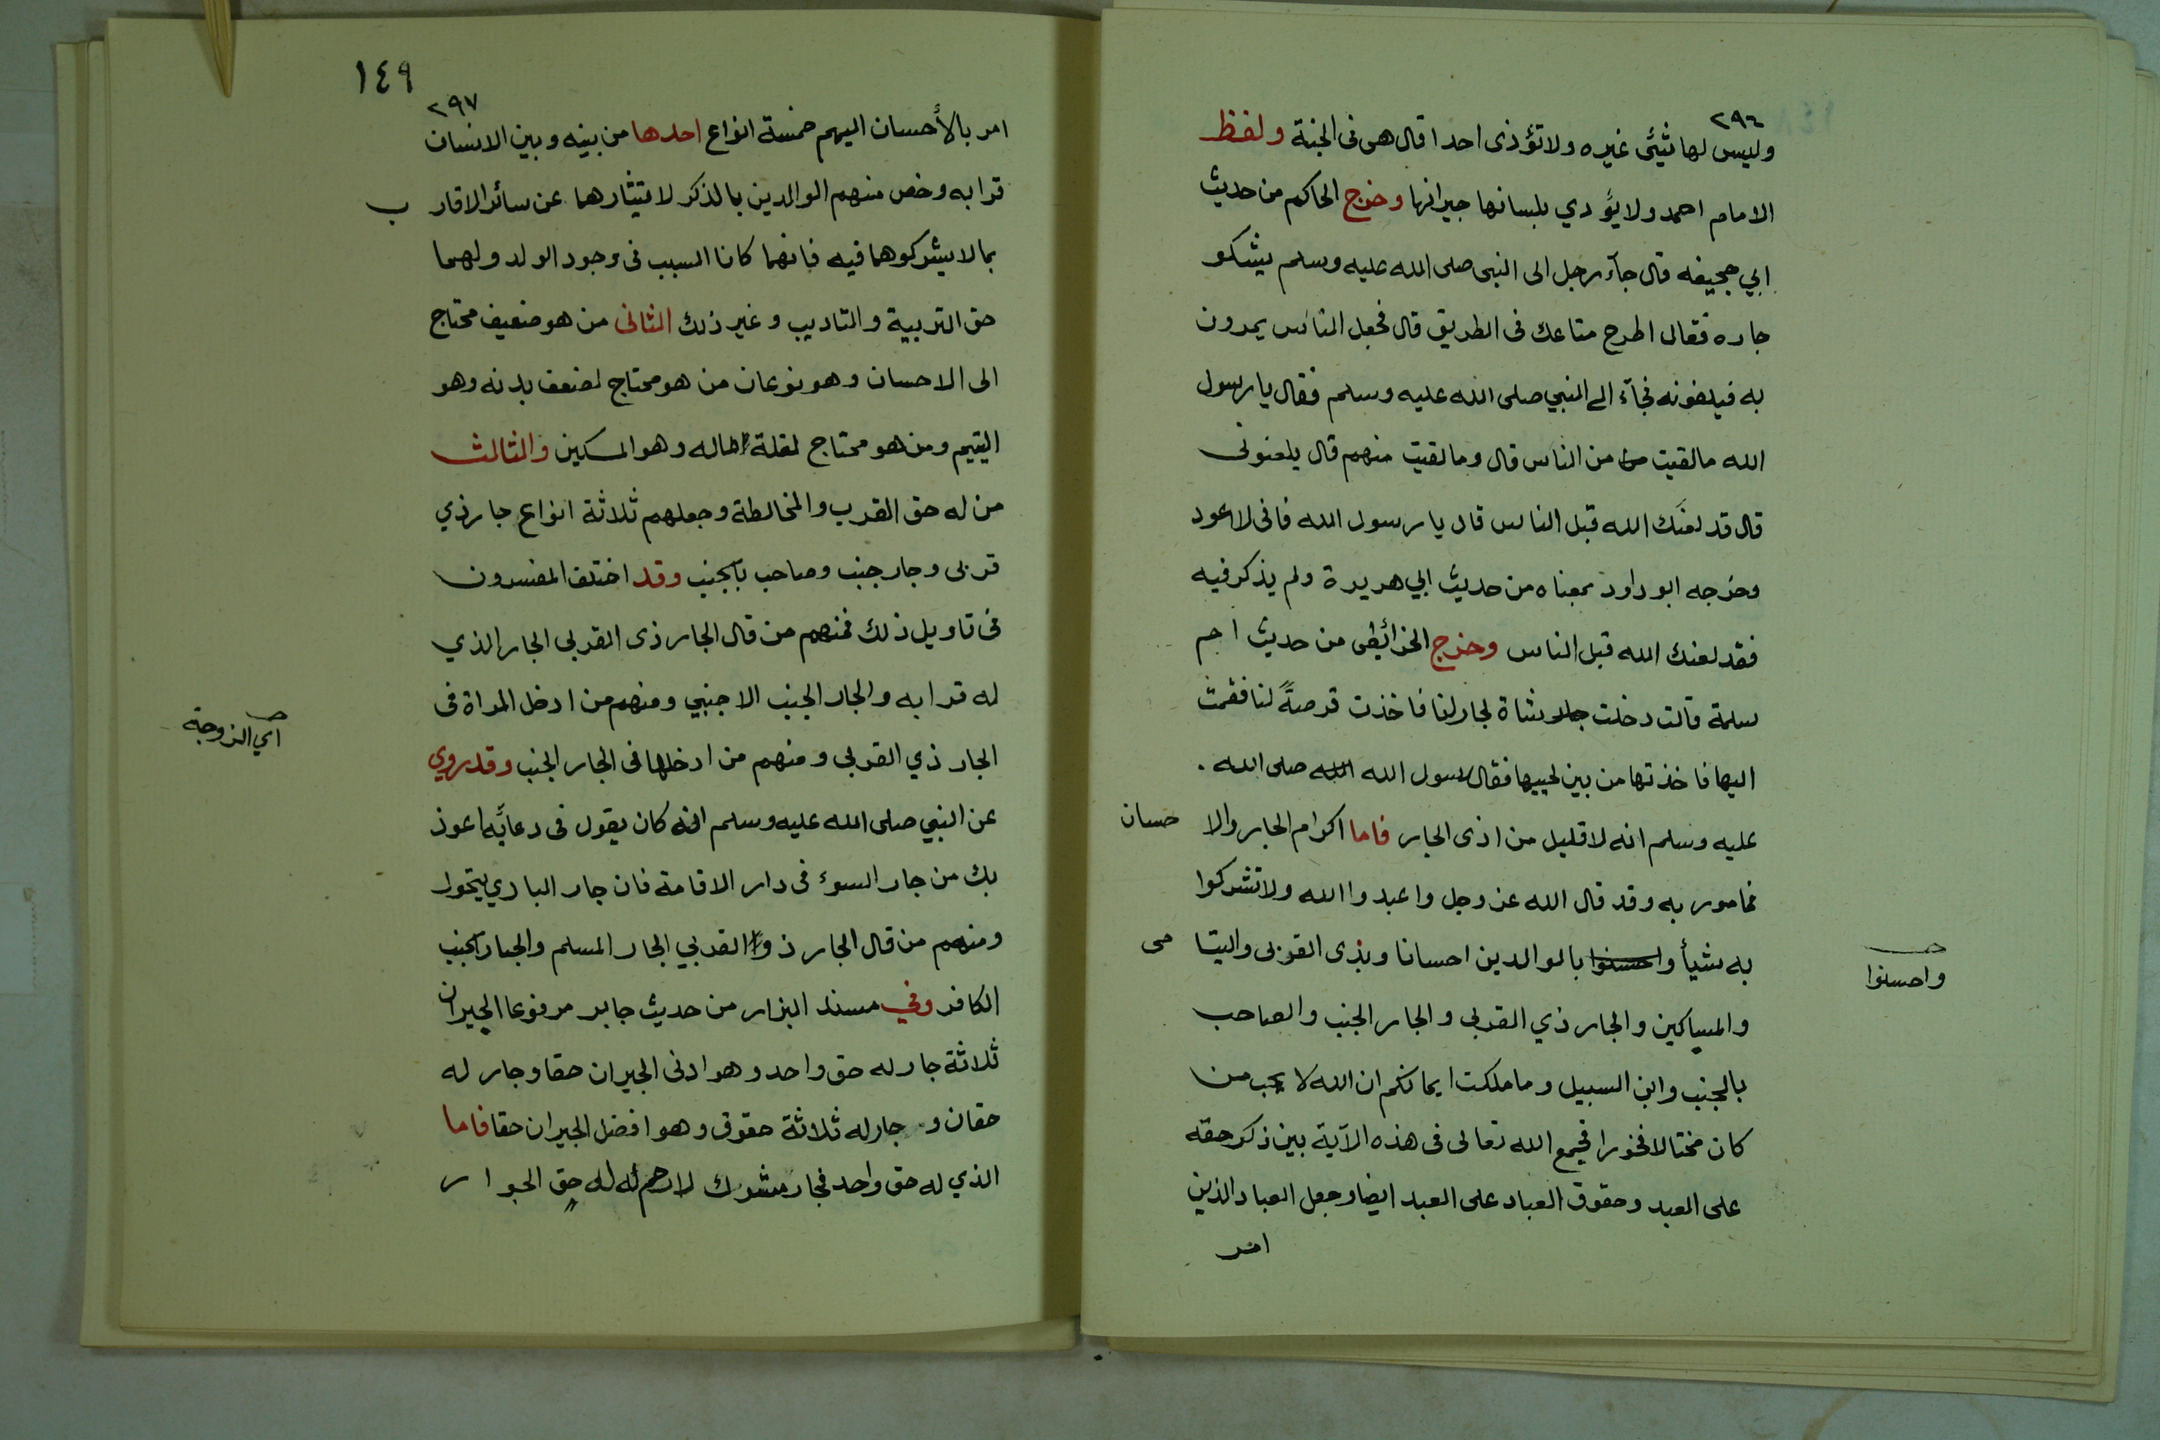 ٢٩٦
وليس لها شيئ غيره ولا تؤذى احدا قال هى فى الجنة ولفظ
الامام احمد ولا يؤدي بلسانها جيرانها وخرج الحاكم من حديث
ابي جحيفه قال جآء رجل الى النبى صلى الله عليه وسلم يشكو
جاره فقال اطرح متاعك فى الطريق قال فجعل الناس يمرون
به فيلعنونه فجآء الى النبي صلى الله عليه وسلم فقال يا رسول
الله مالقيت من الناس قال وما لقيت منهم قال يلعنونى
قال قد لعنك الله قبل الناس قال يا رسول الله فانى لا اعود
وخرجه ابو داود بمعناه من حديث ابي هريرة ولم يذكر فيه
فقد لعنك الله قبل الناس وخرج الخرائطى من حديث ام
سلمة قالت دخلت شاة لجار لنا فاخذت قرصةً لنا فقمت
اليها فاخذتها من بين لحييها فقال رسول الله صلى الله .
عليه وسلم انه لا قليل من اذى الجار فاما اكرام الجار والا حسان
فمامور به وقد قال الله عز وجل واعبدوا الله ولا تشركوا
به شيأ واحسنوا بالوالدين احسانا وبذى القربى واليتا مى
واحسنوا
والمساكين والجار ذي القربى والجار الجنب والصاحب
بالجنب وابن السبيل وما ملكت ايمانكم ان الله لا يحب من
كان مختالا فخورا فجمع الله تعالى فى هذه الآية بين ذكر حقه
على العبد وحقوق العباد على العبد ايضا وجعل العباد الذين
امر
١٤٩
٢٩٧
امر بالأحسان اليهم خمسة انواع احدها من بينه وبين الانسان
قرابه وخص منهم الوالدين بالذكر لامتيثارهما عن سائر الاقار ب
بما لا يشركوهما فيه فانهما كانا السبب فى وجود الولد ولهما
حق التربية والتاديب وغير ذلك الثانى من هو ضعيف محتاج
الى الاحسان وهو نوعان من هو محتاج لضعف بدنه وهو
اليتيم ومن هو محتاج لقلة ماله وهو المسكين والثالث
من له حق القرب والمخالطة وجعلهم ثلاثة انواع جار ذي
قربى وجار جنب وصاحب بالجنب وقد اختلف المفسرون
فى تاويل ذلك فمنهم من قال الجار ذى القربى الجار الذي
له قرابه والجار الجنب الاجنبي ومنهم من ادخل المراة فى
اي الزوجة
الجار ذي القربى ومنهم من ادخلها فى الجار الجنب وقد روي
عن النبي صلى الله عليه وسلم انه كان يقول فى دعائه اعوذ
بك من جار السوء فى دار الاقامة فان جار البادي يتحول
ومنهم من قال الجار ذوا القربي الجار المسلم والجار الجنب
الكافر وفي مسند البزار من حديث جابر مرفوعا الجيران
ثلاثة جار له حق واحد وهو ادنى الجيران حقا وجار له
حقان و جار له ثلاثة حقوق وهو افضل الجيران حقا فاما
الذي له حق واحد فجار مشرك لا رحم له له حق الجوا ر